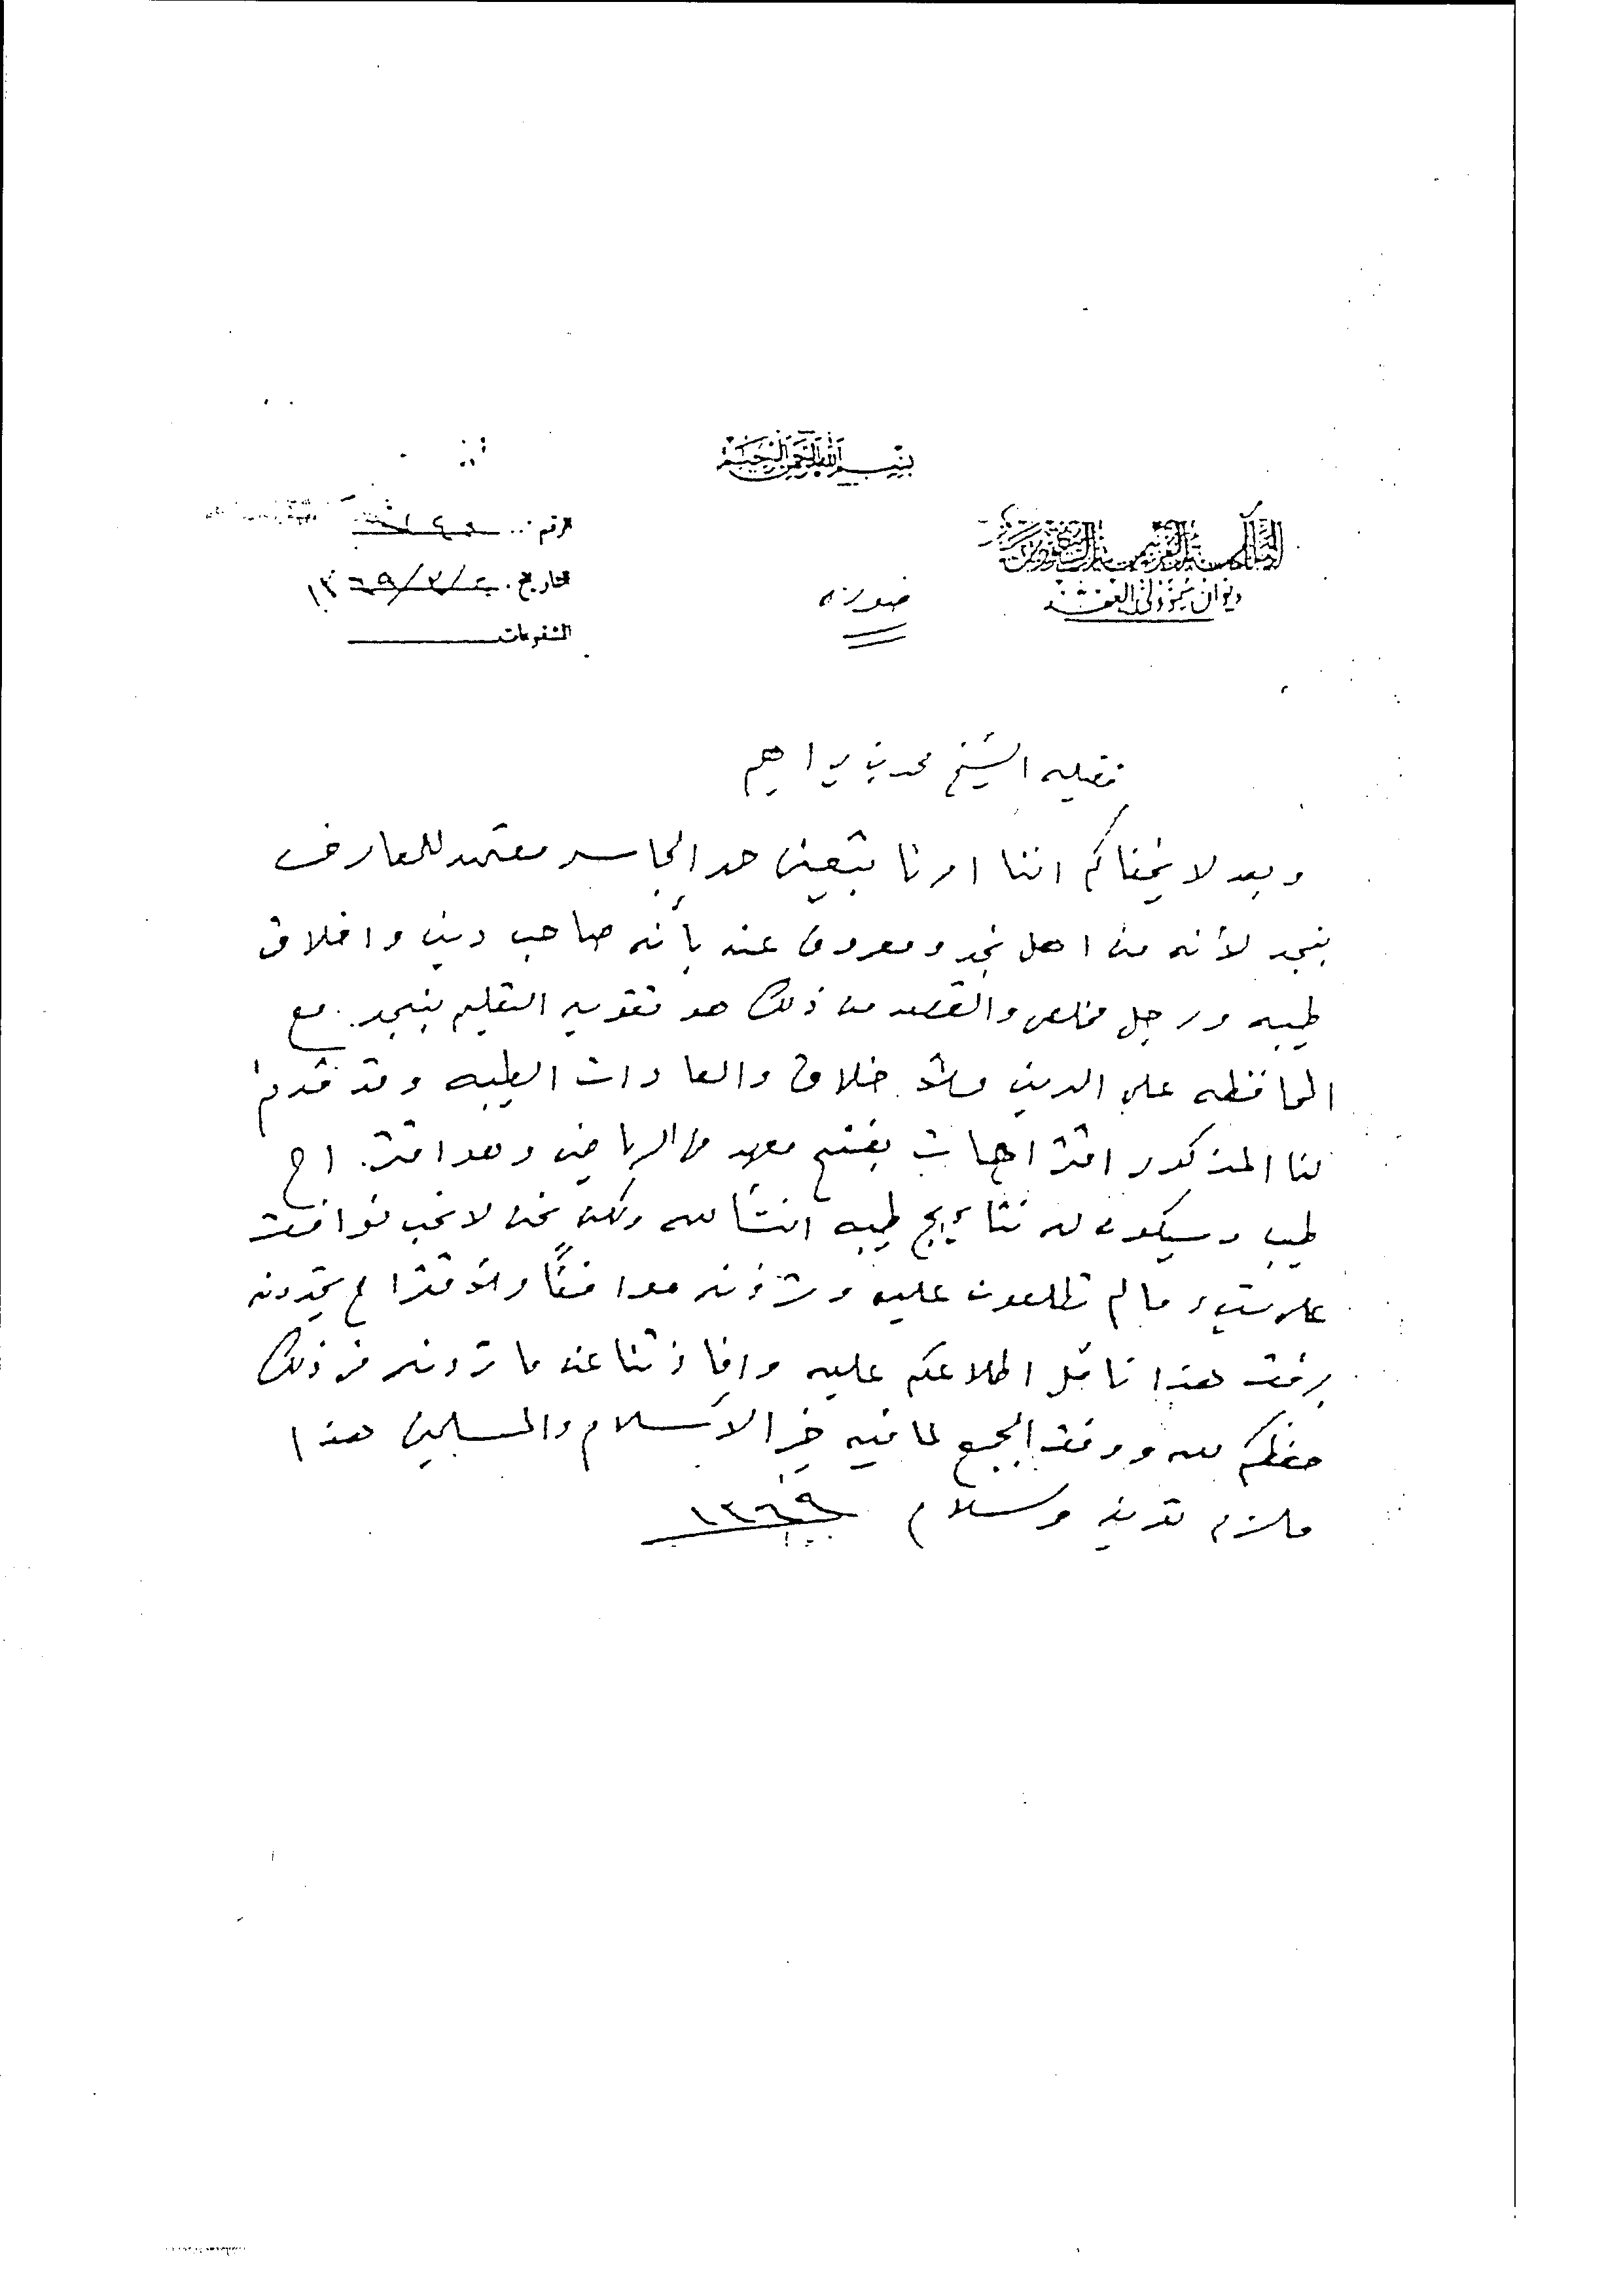 بسم الله الرحمن الرحيم
المملكة العربية السعودية
ديوان سمو ولي العهد
الرقم
التاريخ ١٣٦٩/٢/
المشفوعات
صورة
فضيلة الشيخ محمد بن ابراهيم
وبعد لا يخفاكم اننا امرنا بتعيين حمد الجاسر معتمد للمعارف
بنجد لأنه من اهل نجد ومعروف عنه بأنه صاحب دين واخلاق
طيبه ورجل مخلص والقصد من ذلك هو تقويه التعليم بنجد مع
المحافظه على الدين والاخلاق والعادات الطيبه وقد قدم
لنا المذكور اقتراحات بفتح معهد في الرياض وهو اقتراح
طيب وسيكون له نتائج طيبه انشالله ولكن نحن لا نحب نوافق
على شيء مالم تطلعون عليه وترونه موافقاً والاقتراح تجدونه
برفق هذا نامل اطلاعكم عليه وافادتنا عن ما ترونه في ذلك
حفظكم الله ووفق الجميع لما فيه خير الاسلام والمسلمين هذا
مالزم تعريفه والسلام ١٣٦٩